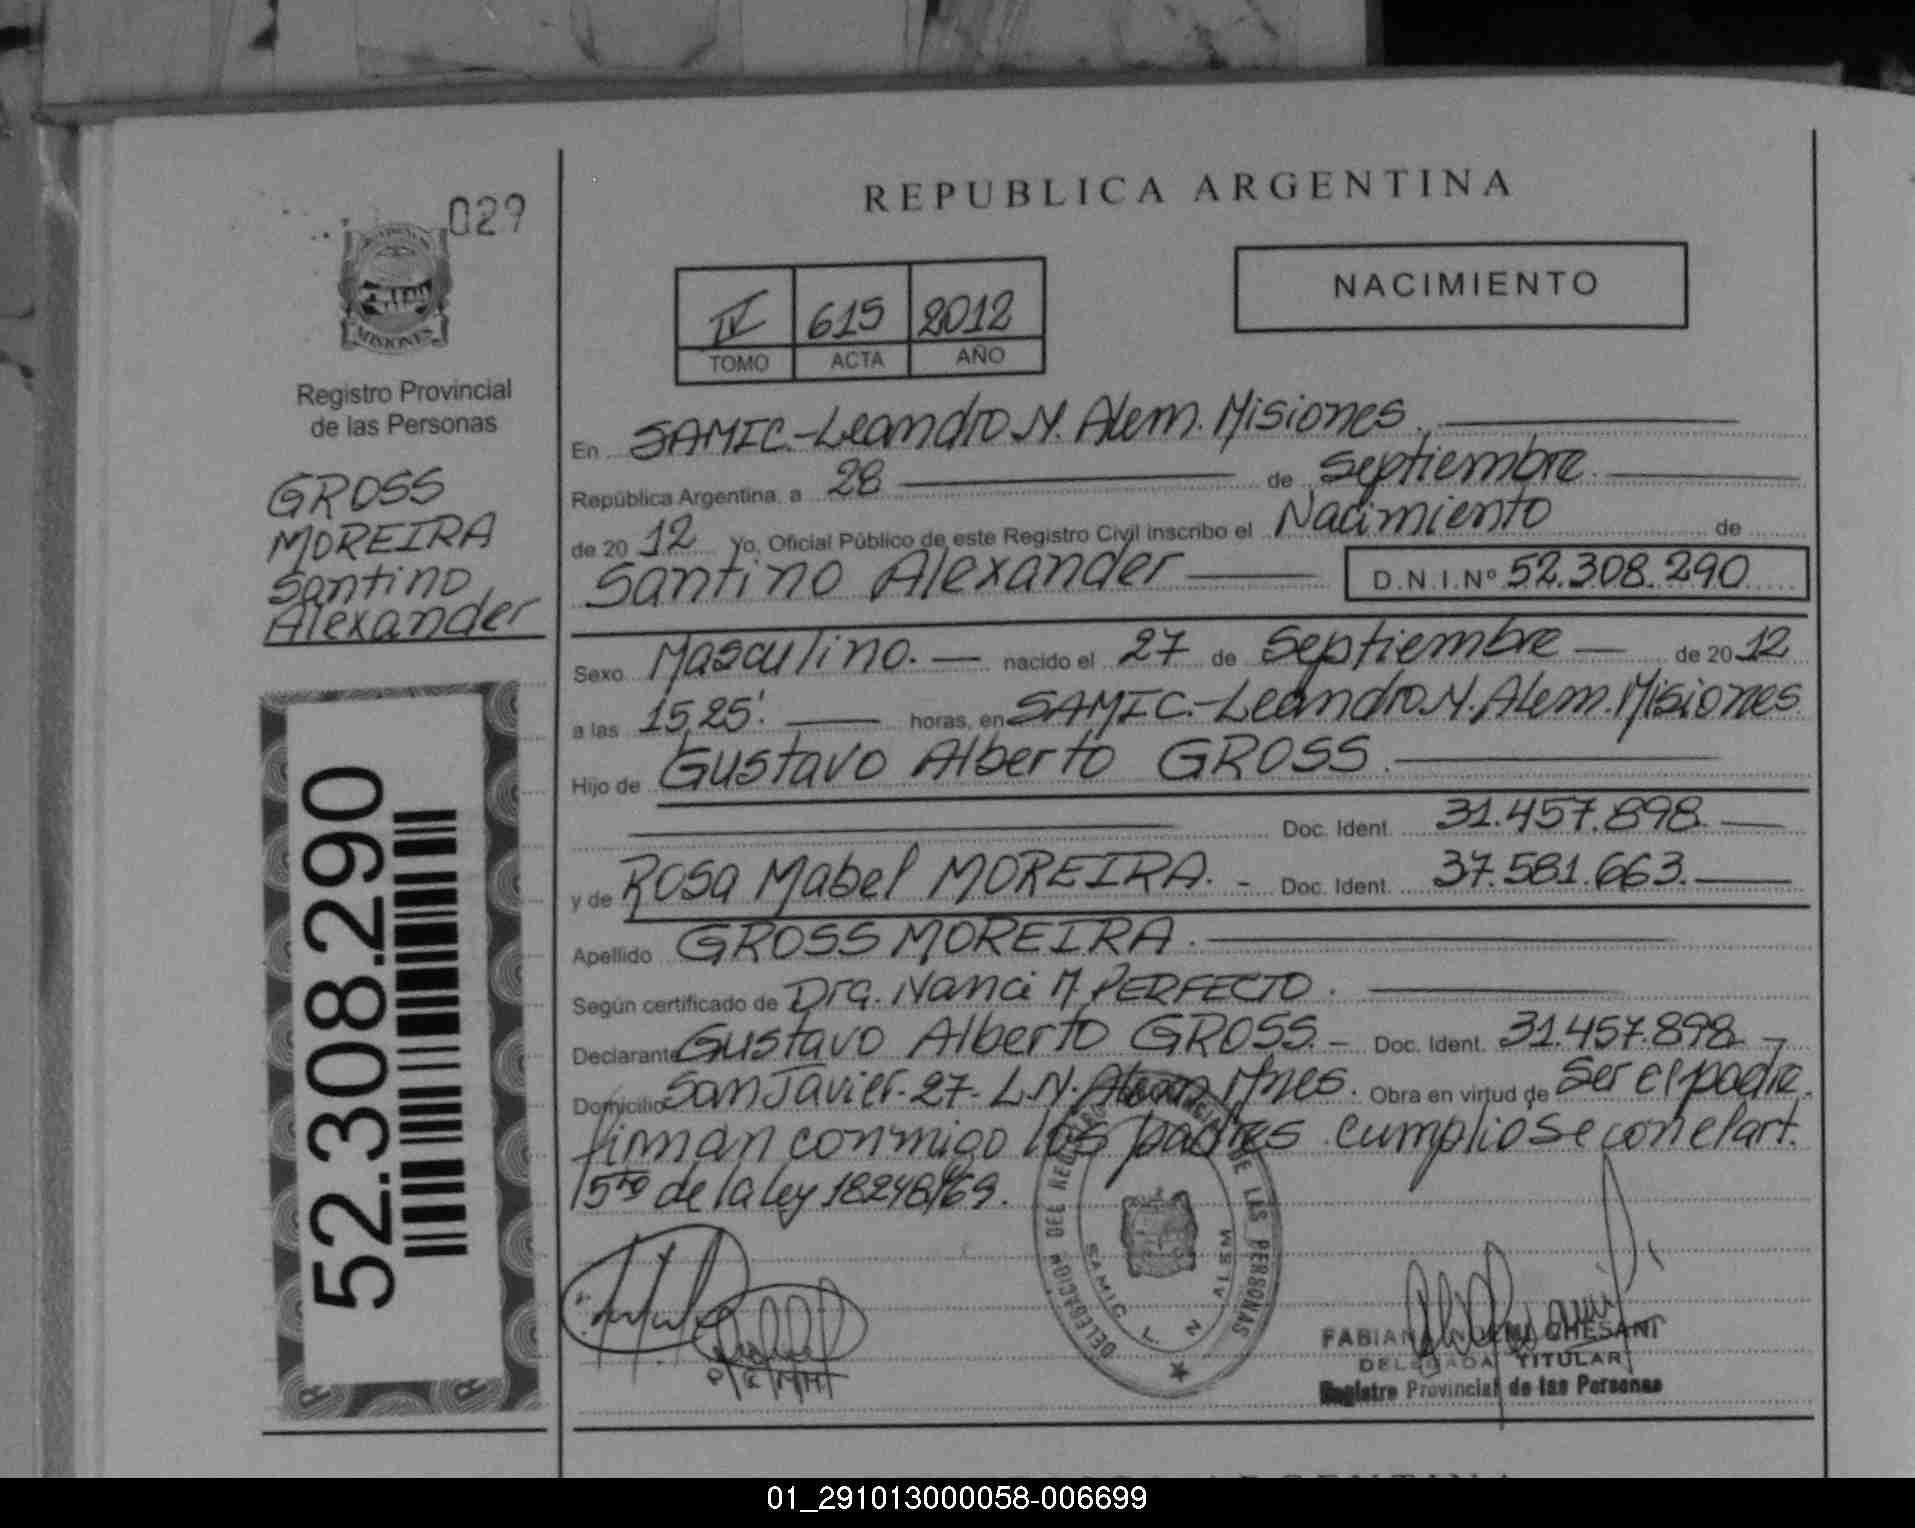 029
MISIONES
Registro Provincial
de las Personas
GROSS
MOREIRA
Santino
Alexander
52.308.290
REPUBLICA ARGENTINA
IV 615 2012
TOMO ACTA AÑO
NACIMIENTO
En SAMIC.-Leandro N. Alem. Misiones.
República Argentina, a 28 de Septiembre.
de 20 12 Yo, Oficial Público de este Registro Civil inscribo el Nacimiento de
Santino Alexander D.N.I.Nº 52.308.290
Sexo Masculino. nacido el 27 de Septiembre de 20 12
a las 15,25'. horas, en SAMIC.-Leandro N. Alem. Misiones
Hijo de Gustavo Alberto GROSS.
Doc. Ident. 31.457.898.
y de Rosa Mabel MOREIRA. - Doc. Ident. 37.581.663.
Apellido GROSS MOREIRA.
Según certificado de Dra. Nanci M. PERFECTO.
Declarante Gustavo Alberto GROSS. - Doc. Ident. 31.457.898
Domicilio San Javier-27- L.N. Alem Mnes. Obra en virtud de Ser el padre.
firman conmigo los padres. cumpliose con el art.
15to de la ley 18248/69.
DELEGACION DEL REGISTRO PROVINCIAL DE LAS PERSONAS
SAMIC L. N ALEM
FABIANA NOEMI CHESANI
DELEGADA TITULAR
Registro Provincial de las Personas
01_291013000058-006699